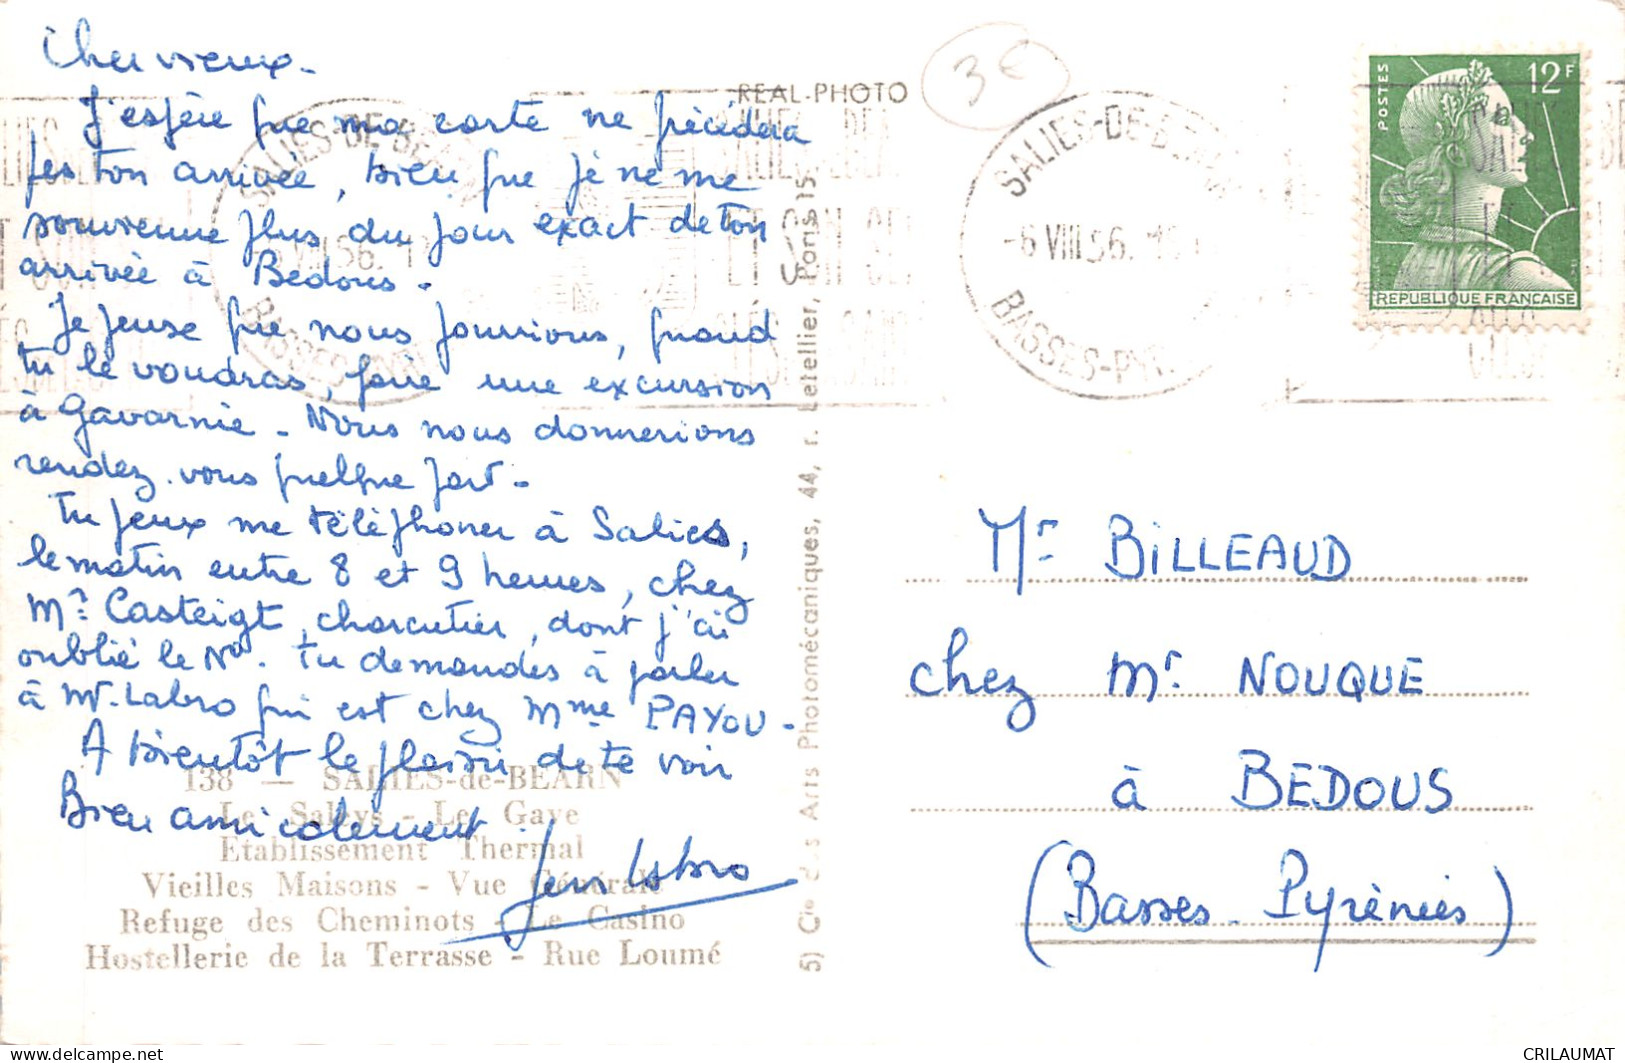 Cher vieux -
J'espère que ma carte ne précédera
pas ton arrivée, bien que je ne me
souvienne plus du jour exact de ton
arrivée à Bedous.
Je pense que nous pourrions, quand
tu le voudras, faire une excursion
à Gavarnie - Nous nous donnerions
rendez-vous quelque part -
Tu peux me téléphoner à Salies,
le matin entre 8 et 9 heures, chez
Mr Casteigt, charcutier, dont j'ai
oublié le No. Tu demandes à parler
à Mr. Labro qui est chez Mme PAYOU -
A bientôt le plaisir de te voir
Bien amicalement
Jean Labro
138 — SALIES-de-BEARN
Le Saleys - Le Gave
Etablissement Thermal
Vieilles Maisons - Vue Générale
Refuge des Cheminots - Le Casino
Hostellerie de la Terrasse - Rue Loumé
REAL-PHOTO
5) Cie des Arts Photomécaniques, 44, r. Letellier, Paris 15
3€
SALIES-DE-BEARN
-6 VIII 56.
BASSES-PYR.
POSTES
12F
REPUBLIQUE FRANCAISE
Mr BILLEAUD
chez Mr NOUQUE
à BEDOUS
(Basses-Pyrénées)
CRILAUMAT